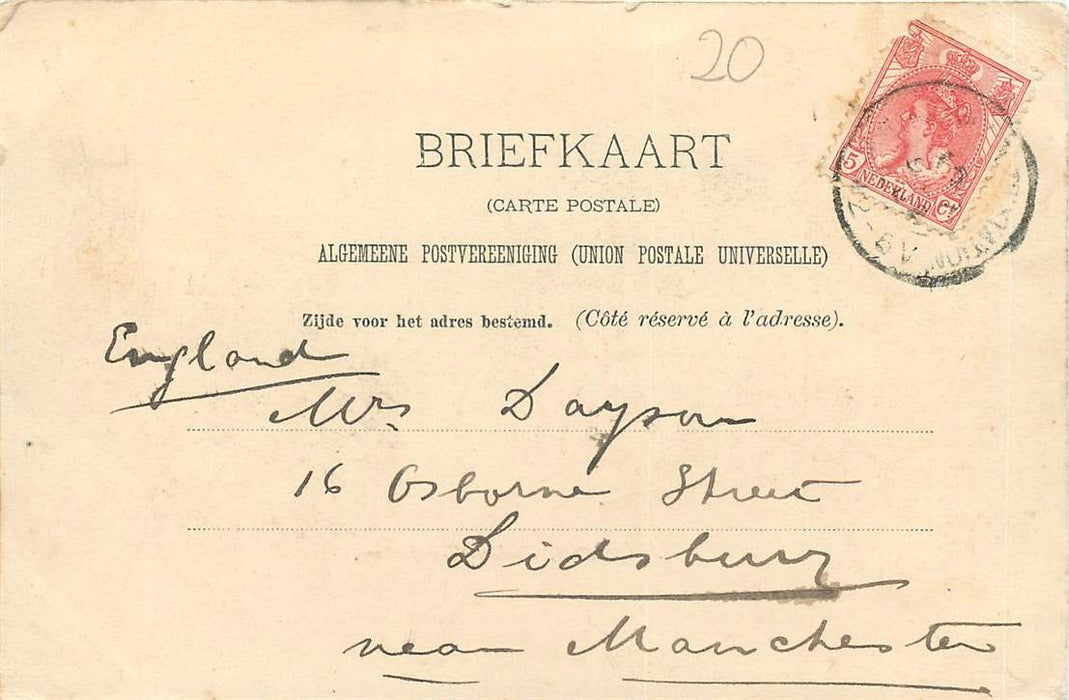 20
5 NEDERLAND Ct
BRIEFKAART
(CARTE POSTALE)
ALGEMEENE POSTVEREENIGING (UNION POSTALE UNIVERSELLE)
Zijde voor het adres bestemd. (Côté réservé à l'adresse).
England
Mrs Dayson
16 Osborne Street
Didsbury
near Manchester